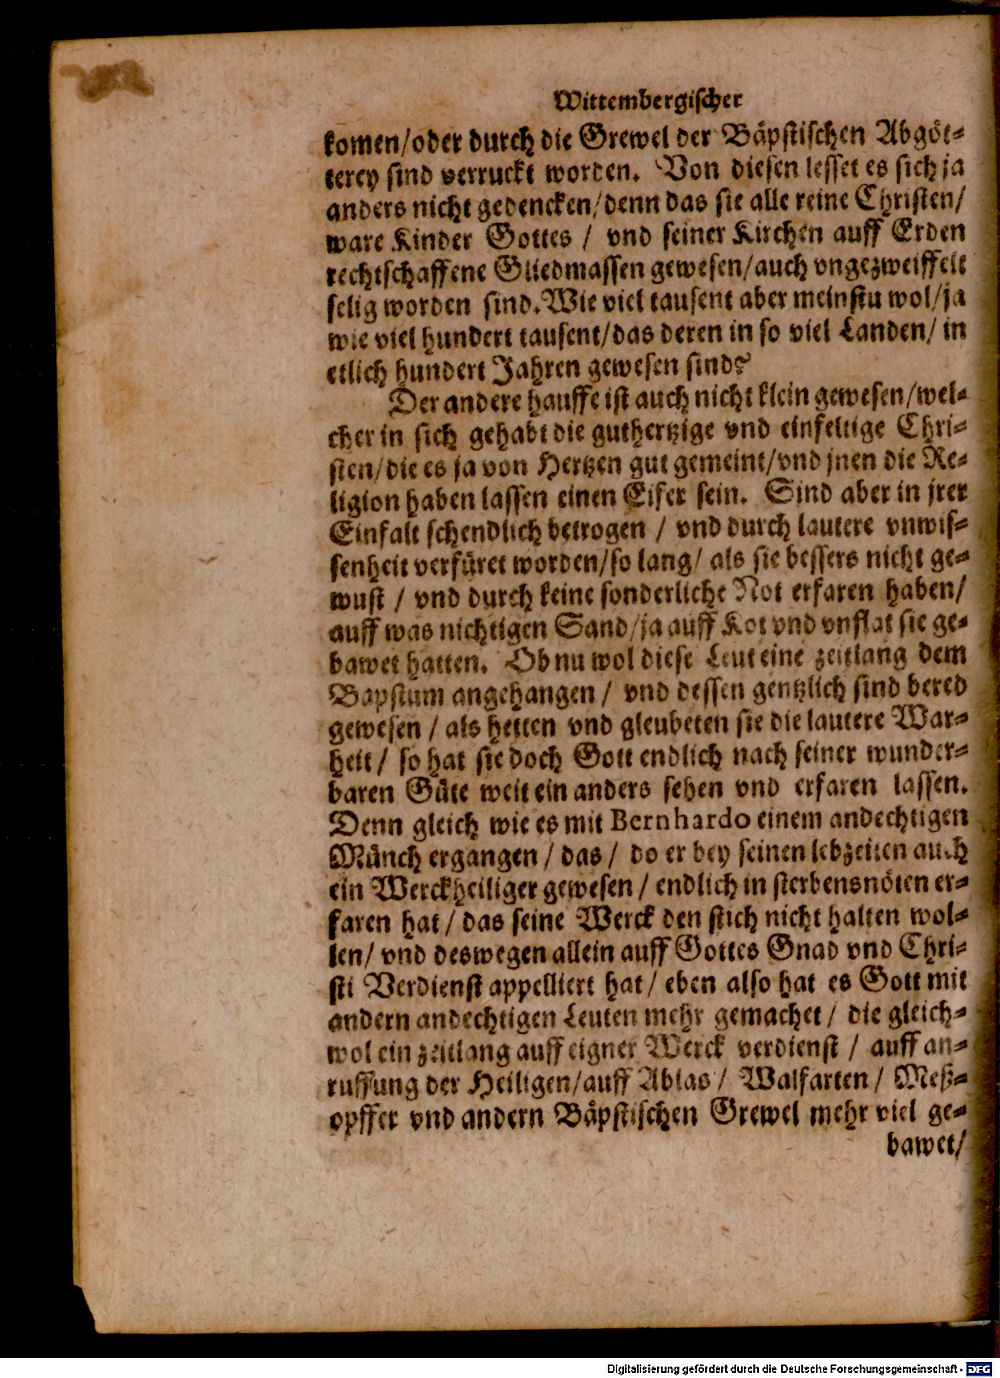 Wittembergischer
komen/oder durch die Grewel der Bäpstischen Abgöt-
terey sind verruckt worden. Von diesen lesset es sich ja
anders nicht gedencken/denn das sie alle reine Christen/
ware Kinder Gottes / vnd seiner Kirchen auff Erden
rechtschaffene Gliedmassen gewesen/auch vngezweiffelt
selig worden sind. Wie viel tausent aber meinstu wol/ja
wie viel hundert tausent/das deren in so viel Landen/ in
etlich hundert Jahren gewesen sind?
Der andere hauffe ist auch nicht klein gewesen/wel-
cher in sich gehabt die guthertzige vnd einfeltige Chri-
sten/die es ja von Hertzen gut gemeint/vnd jnen die Re-
ligion haben lassen einen Eifer sein. Sind aber in jrer
Einfalt schendlich betrogen / vnd durch lautere vnwis-
senheit verfüret worden/so lang/ als sie bessers nicht ge-
wust / vnd durch keine sonderliche Not erfaren haben/
auff was nichtigen Sand/ja auff Kot vnd vnflat sie ge-
bawet hatten. Ob nu wol diese Leut eine zeitlang dem
Bapstum angehangen / vnd dessen gentzlich sind bered
gewesen / als hetten vnd gleubeten sie die lautere War-
heit / so hat sie doch Gott endlich nach seiner wunder-
baren Güte weit ein anders sehen vnd erfaren lassen.
Denn gleich wie es mit Bernhardo einem andechtigen
Münch ergangen / das / do er bey seinen lebzeiten auch
ein Werckheiliger gewesen / endlich in sterbensnöten er-
faren hat / das seine Werck den stich nicht halten wol-
len/ vnd deswegen allein auff Gottes Gnad vnd Chri-
sti Verdienst appelliert hat / eben also hat es Gott mit
andern andechtigen Leuten mehr gemachet / die gleich-
wol ein zeitlang auff eigner Werck verdienst / auff an-
ruffung der Heiligen/auff Ablas / Walfarten / Meß-
opffer vnd andern Bäpstischen Grewel mehr viel ge-
bawet/
Digitalisierung gefördert durch die Deutsche Forschungsgemeinschaft - DFG